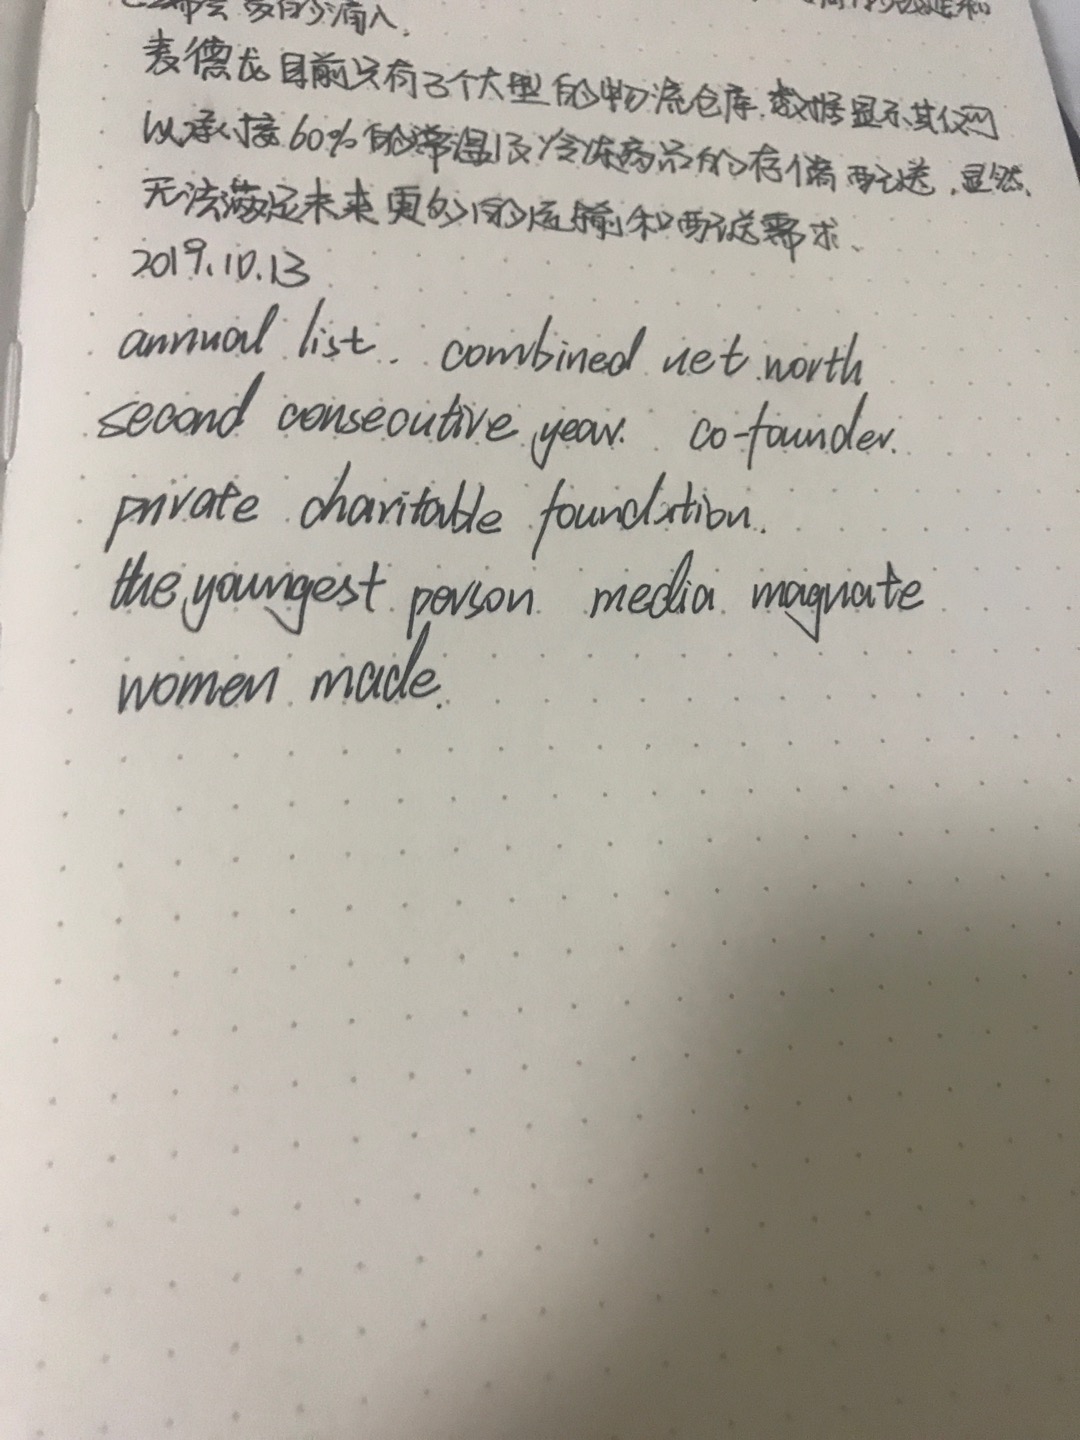 麦德龙目前只有3个大型的物流仓库.数据显示,其仅可
以承接60%的常温及冷冻商品的存储配送,显然,
无法满足未来更多的运输和配送需求、
2019.10.13
annual list. combined net worth
second consecutive year. co-founder.
private charitable foundation.
the youngest person media magnate
women made.